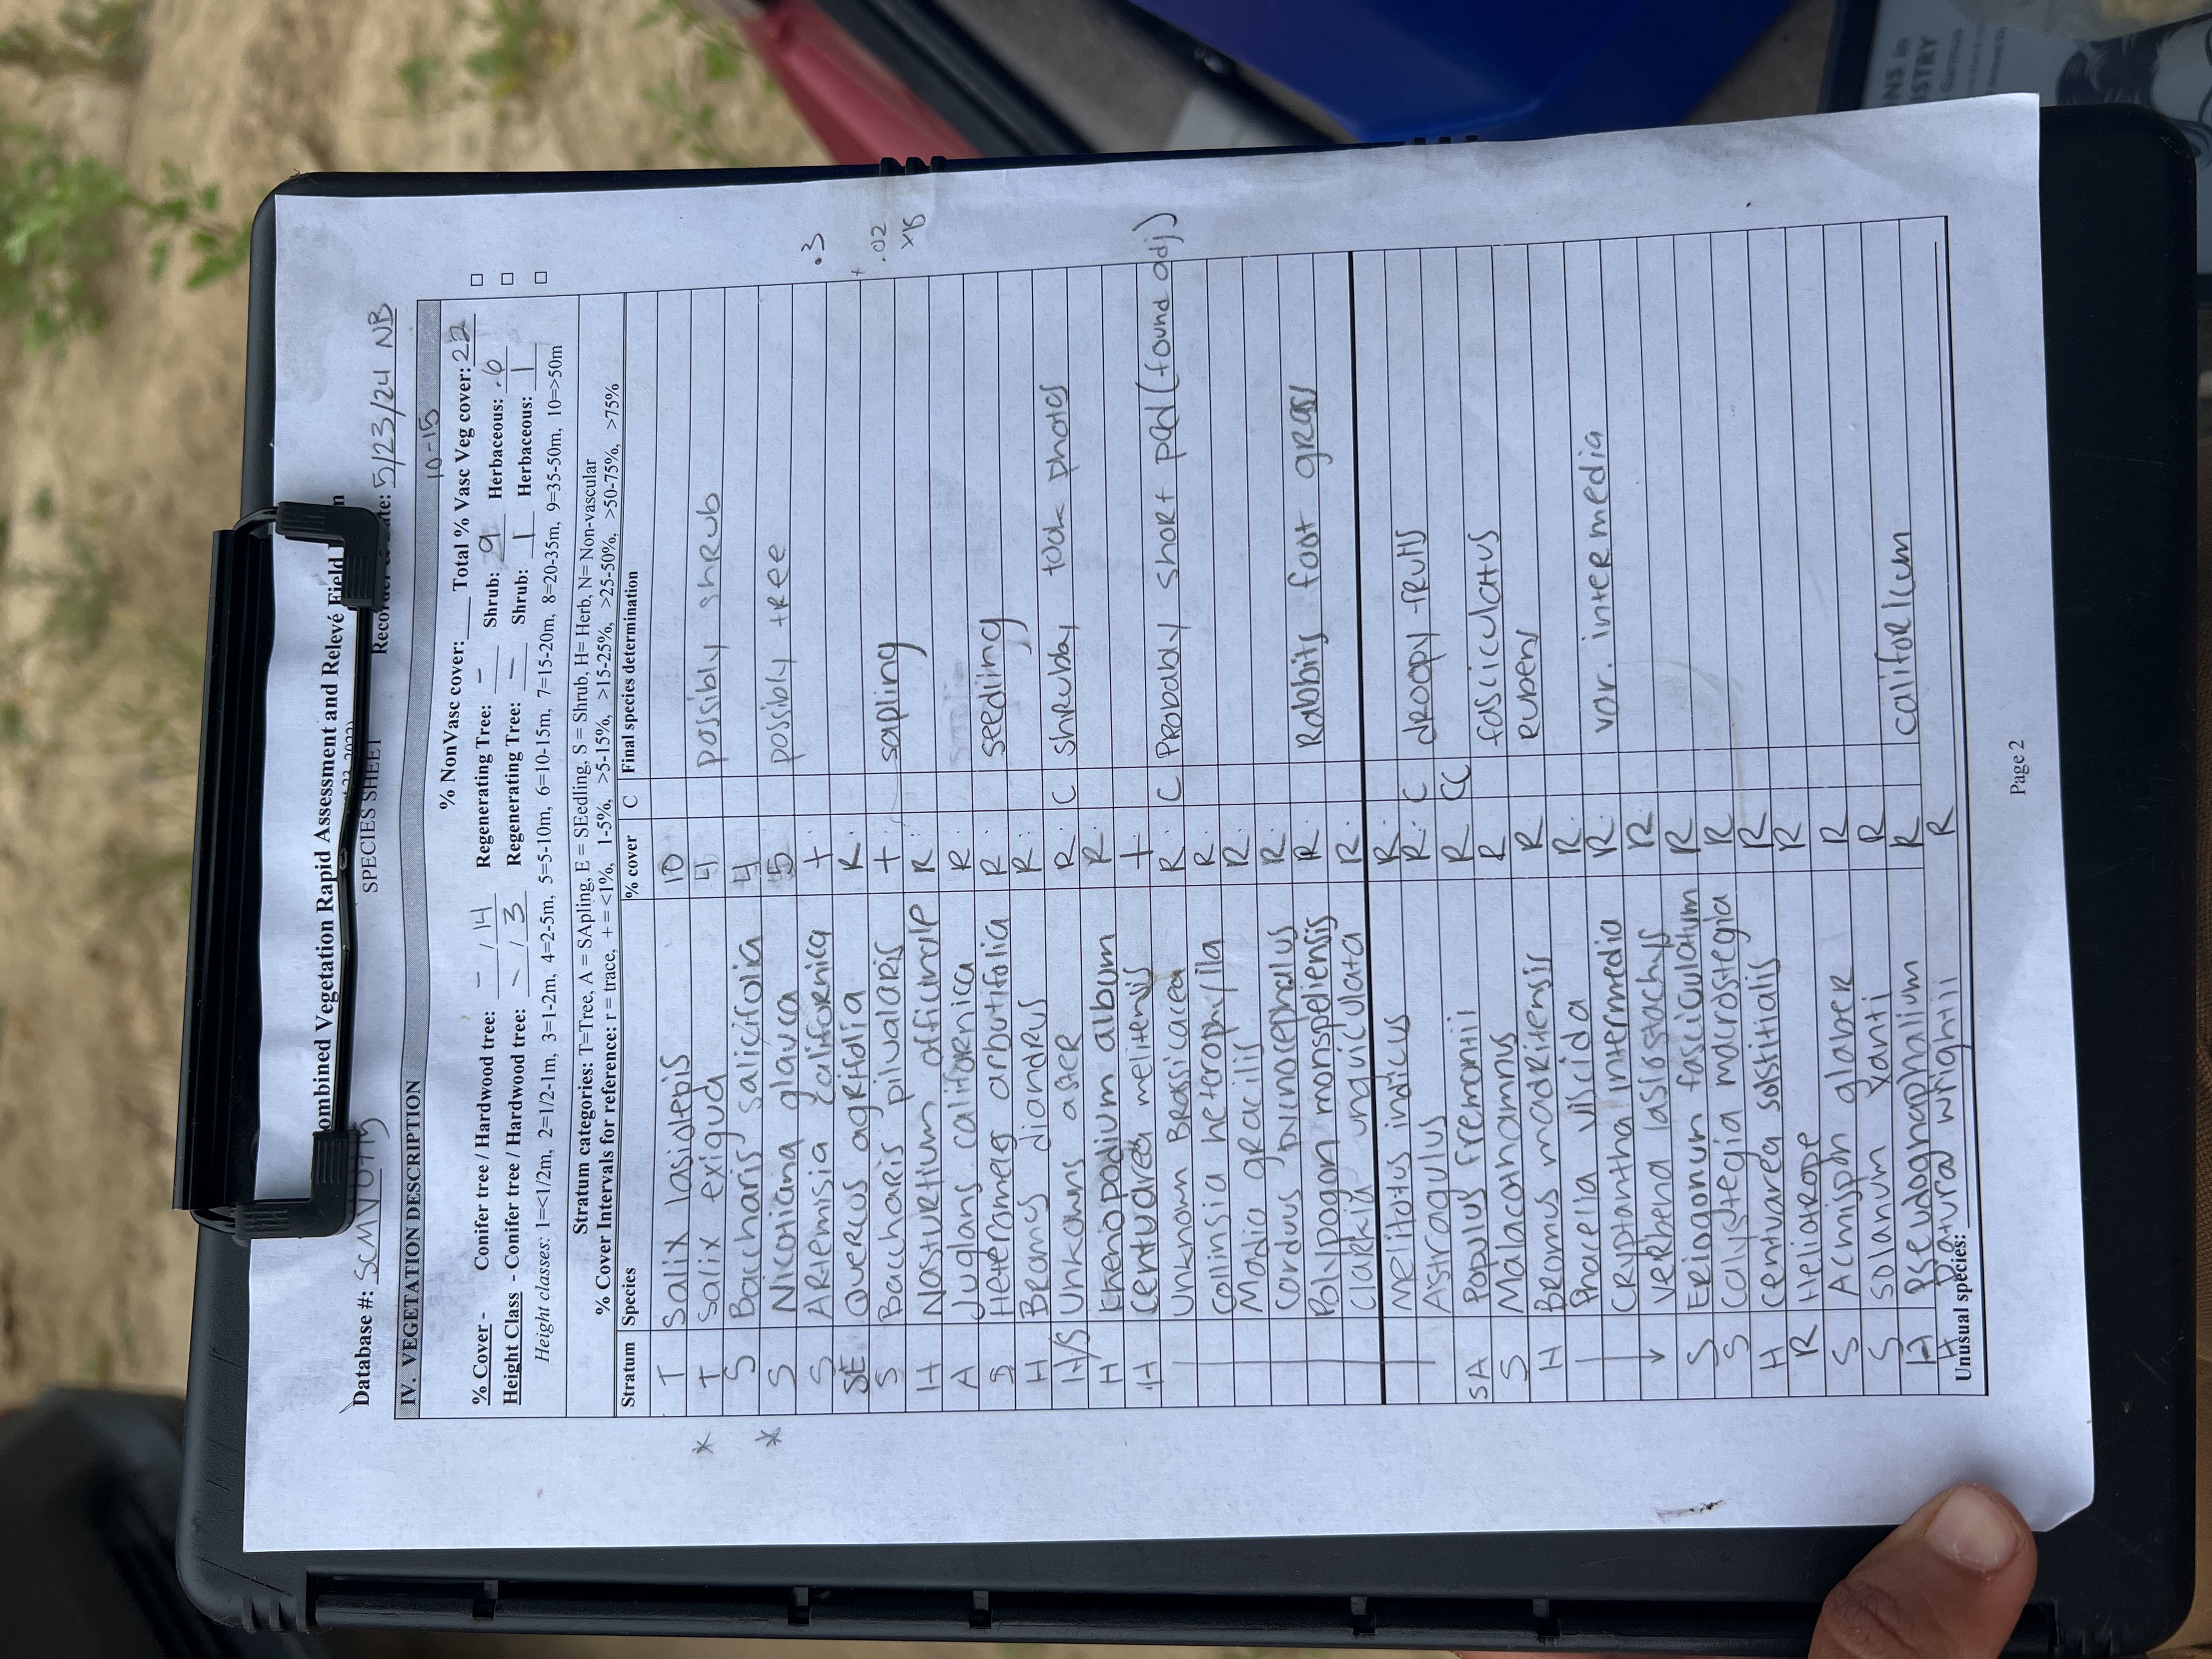 ombined Vegetation Rapid Assessment and Relevé Field
SPECIES SHEET
Database #: SCMV0113
5/23/24 NB
IV. VEGETATION DESCRIPTION
10-15
% NonVasc cover: ___ Total % Vasc Veg cover: 22
% Cover - Conifer tree / Hardwood tree: - / 14 Regenerating Tree: - Shrub: 9 Herbaceous: .6
Height Class - Conifer tree / Hardwood tree: - / 3 Regenerating Tree: - Shrub: 1 Herbaceous: 1
Height classes: 1=<1/2m, 2=1/2-1m, 3=1-2m, 4=2-5m, 5=5-10m, 6=10-15m, 7=15-20m, 8=20-35m, 9=35-50m, 10=>50m
Stratum categories: T=Tree, A = SApling, E = SEedling, S = Shrub, H= Herb, N= Non-vascular
% Cover Intervals for reference: r = trace, + = <1%, 1-5%, >5-15%, >15-25%, >25-50%, >50-75%, >75%
Stratum Species % cover C Final species determination
T Salix lasiolepis 10
* T Salix exigua 4 possibly shrub
S Baccharis salicifolia 4
* S Nicotiana glauca 5 possibly tree
S Artemisia californica + .3
SE Quercus agrifolia R.
S Baccharis pilualaris + sapling + .02
H Nasturtium officinale R x18
A Juglans californica R
S Heteromeles arbutifolia R. seedling
H Bromus diandrus R.
H/S Unkowns aster R. C shrubby took photos
H Chenopodium album R
H Centuarea melitensis +
Unknown Brassicacea R. C Probably short pod (found adj)
Collinsia heterophylla R
Madia gracilis R.
Carduus picnocephalus R.
Polypogon monspeliensis R Rabbits foot grass
Clarkia unguiculata R.
Melilotus indicus R.
Astragulus R. C droopy fruits
SA Populus fremontii R CC
S Malacothamnus R fasciculatus
H Bromus madritensis R. rubens
Phacelia viscida R.
Cryptantha intermedia R. var. intermedia
Verbena lasiostachys R.
S Eriogonum fasciculatum R
S Calystegia macrostegia R
H Centuarea solstitialis R
R Heliotrope R
S Acmispon glaber R
S Solanum xanti R
H Pseudognaphalium R californicum
H Datura wrightii R
Unusual species:
Page 2